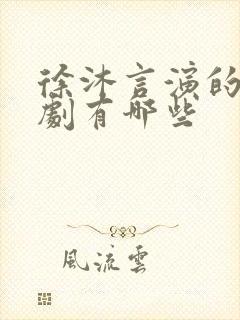 徐沐言演的
劇有哪些
風流雲